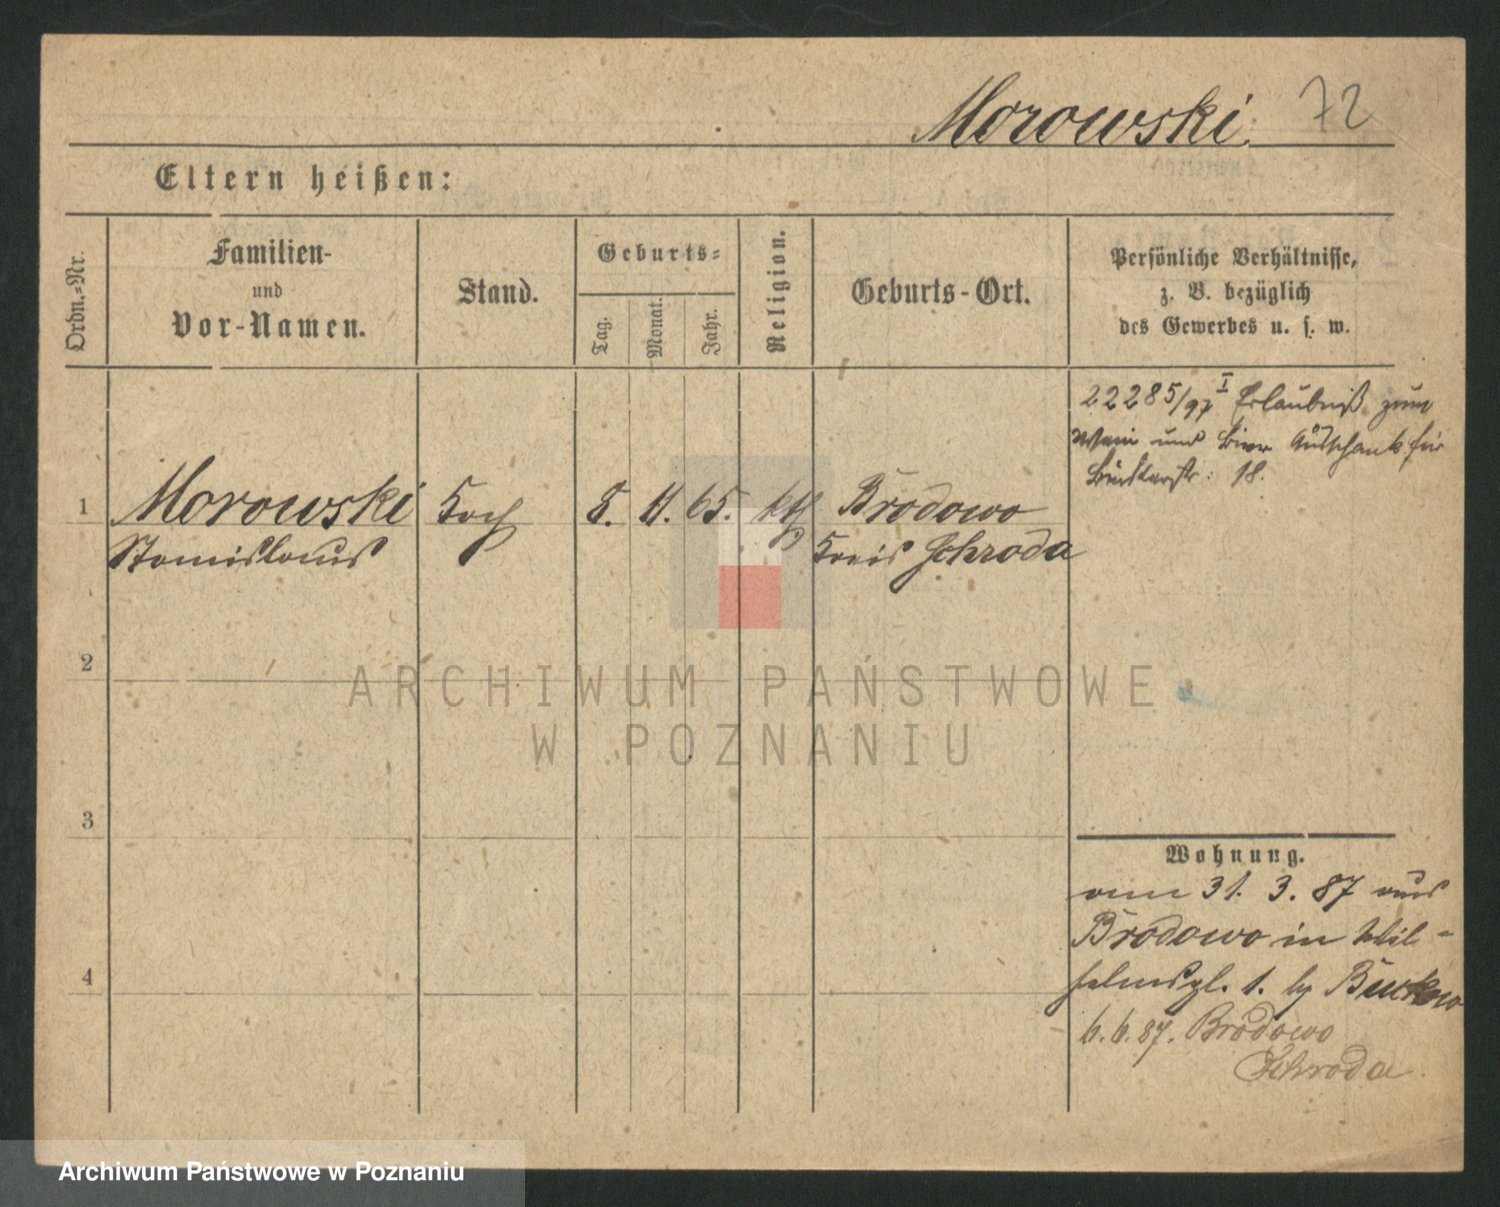 Morowski. 72
Eltern heißen:
Ordn.-Nr.
Familien-
und
Vor-Namen.
Stand.
Geburts-
Tag.
Monat.
Jahr.
Religion.
Geburts-Ort.
Persönliche Verhältnisse,
z. B. bezüglich
des Gewerbes u. s. w.
22285/97 I Erlaubniß zum
Wein und Bier Ausschank für
18.
1 Morowski Koch 8. 11. 65. kth Brodowo
Stanislaus Kreis Schroda
2
ARCHIWUM PAŃSTWOWE
W POZNANIU
3
4
Wohnung.
vom 31. 3. 87 aus
Brodowo in Wil-
helmspl. 1. by
6.6.87. Brodowo
Schroda.
Archiwum Państwowe w Poznaniu